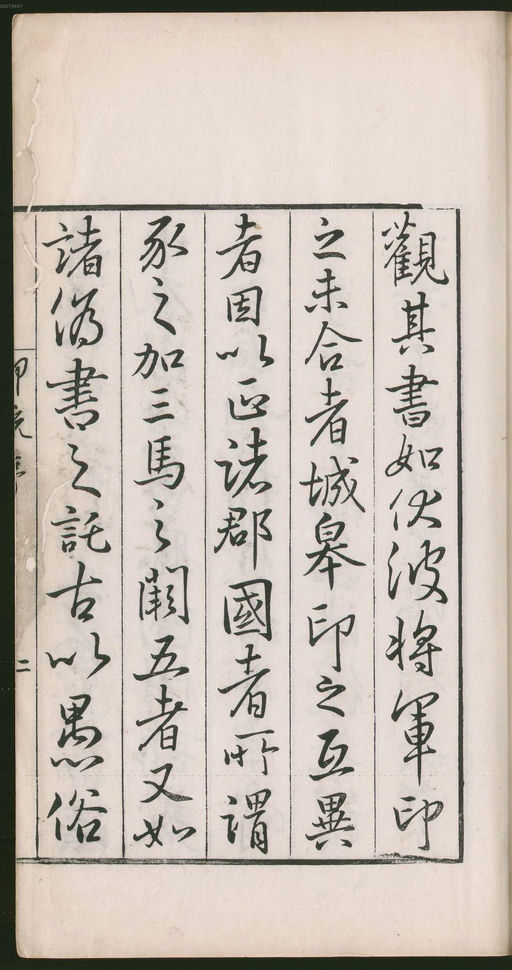 觀其書如伏波將軍印
之未合者城皋印之互異
者因以正諸郡國者所謂
豕之加三馬之闕五者又如
諸偽書之託古以愚俗
印
二
00073447